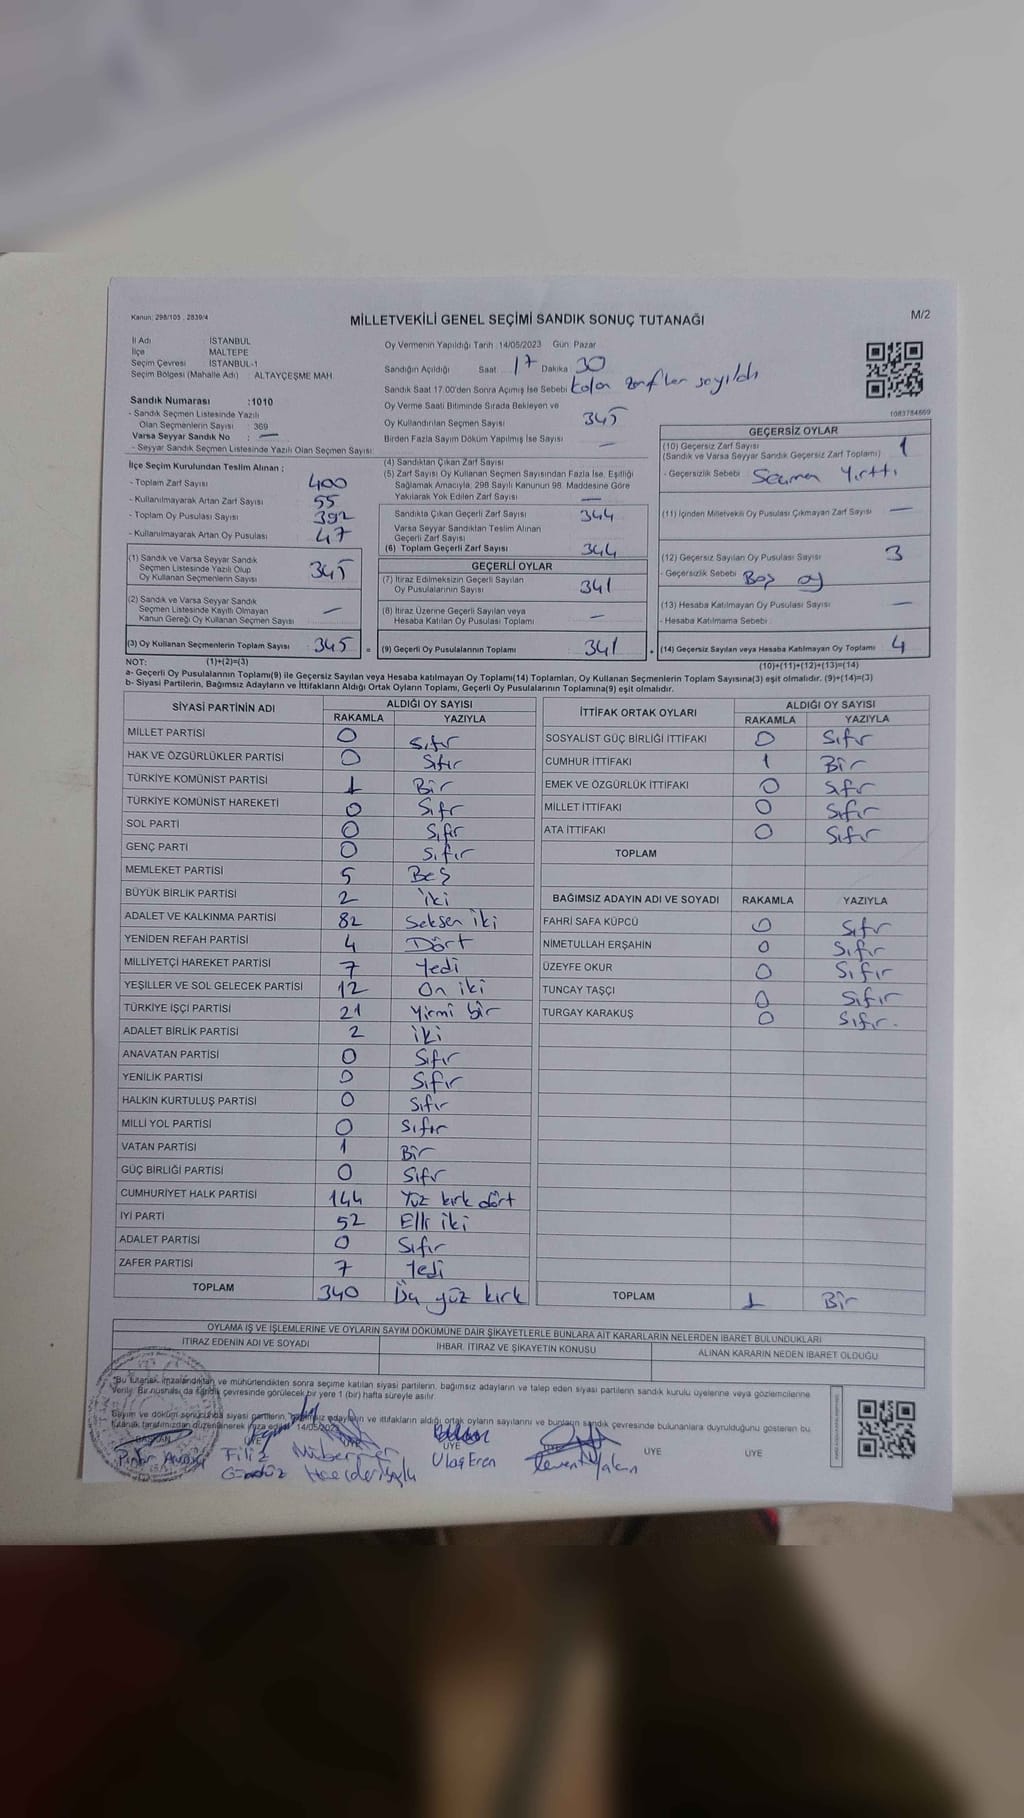 Kanun: 298/105 , 2839/4
MİLLETVEKİLİ GENEL SEÇİMİ SANDIK SONUÇ TUTANAĞI
M/2
İl Adı İSTANBUL
İlçe MALTEPE
Seçim Çevresi İSTANBUL-1
Seçim Bölgesi (Mahalle Adı) : ALTAYÇEŞME MAH.
Sandık Numarası :1010
- Sandık Seçmen Listesinde Yazılı
Olan Seçmenlerin Sayısı : 369
Varsa Seyyar Sandık No : —
- Seyyar Sandık Seçmen Listesinde Yazılı Olan Seçmen Sayısı:
Oy Vermenin Yapıldığı Tarih :14/05/2023 Gün: Pazar
Sandığın Açıldığı Saat 17 Dakika 30
Sandık Saat 17.00'den Sonra Açılmış İse Sebebi kalan zarflar sayıldı
Oy Verme Saati Bitiminde Sırada Bekleyen ve
Oy Kullandırılan Seçmen Sayısı 345
Birden Fazla Sayım Döküm Yapılmış İse Sayısı —
1083784669
İlçe Seçim Kurulundan Teslim Alınan ;
- Toplam Zarf Sayısı 400
- Kullanılmayarak Artan Zarf Sayısı 55
- Toplam Oy Pusulası Sayısı 392
- Kullanılmayarak Artan Oy Pusulası 47
(1) Sandık ve Varsa Seyyar Sandık
Seçmen Listesinde Yazılı Olup
Oy Kullanan Seçmenlerin Sayısı 345
(2) Sandık ve Varsa Seyyar Sandık
Seçmen Listesinde Kayıtlı Olmayan
Kanun Gereği Oy Kullanan Seçmen Sayısı —
(3) Oy Kullanan Seçmenlerin Toplam Sayısı 345 =
(1)+(2)=(3)
(4) Sandıktan Çıkan Zarf Sayısı
(5) Zarf Sayısı Oy Kullanan Seçmen Sayısından Fazla İse, Eşitliği
Sağlamak Amacıyla, 298 Sayılı Kanunun 98. Maddesine Göre
Yakılarak Yok Edilen Zarf Sayısı —
Sandıkta Çıkan Geçerli Zarf Sayısı 344
Varsa Seyyar Sandıktan Teslim Alınan
Geçerli Zarf Sayısı
(6) Toplam Geçerli Zarf Sayısı 344
GEÇERLİ OYLAR
(7) İtiraz Edilmeksizin Geçerli Sayılan
Oy Pusulalarının Sayısı 341
(8) İtiraz Üzerine Geçerli Sayılan veya
Hesaba Katılan Oy Pusulası Toplamı —
(9) Geçerli Oy Pusulalarının Toplamı 341
GEÇERSİZ OYLAR
(10) Geçersiz Zarf Sayısı 1
(Sandık ve Varsa Seyyar Sandık Geçersiz Zarf Toplamı)
- Geçersizlik Sebebi Seçmen Yırttı
(11) İçinden Milletvekili Oy Pusulası Çıkmayan Zarf Sayısı —
(12) Geçersiz Sayılan Oy Pusulası Sayısı 3
- Geçersizlik Sebebi Boş oy
(13) Hesaba Katılmayan Oy Pusulası Sayısı —
- Hesaba Katılmama Sebebi
(14) Geçersiz Sayılan veya Hesaba Katılmayan Oy Toplamı 4
(10)+(11)+(12)+(13)=(14)
NOT:
a- Geçerli Oy Pusulalarının Toplamı(9) ile Geçersiz Sayılan veya Hesaba katılmayan Oy Toplamı(14) Toplamları, Oy Kullanan Seçmenlerin Toplam Sayısına(3) eşit olmalıdır. (9)+(14)=(3)
b- Siyasi Partilerin, Bağımsız Adayların ve İttifakların Aldığı Ortak Oyların Toplamı, Geçerli Oy Pusulalarının Toplamına(9) eşit olmalıdır.
SİYASİ PARTİNİN ADI ALDIĞI OY SAYISI
RAKAMLA YAZIYLA
MİLLET PARTİSİ 0 Sıfır
HAK VE ÖZGÜRLÜKLER PARTİSİ 0 Sıfır
TÜRKİYE KOMÜNİST PARTİSİ 1 Bir
TÜRKİYE KOMÜNİST HAREKETİ 0 Sıfır
SOL PARTİ 0 Sıfır
GENÇ PARTİ 0 Sıfır
MEMLEKET PARTİSİ 5 Beş
BÜYÜK BİRLİK PARTİSİ 2 İki
ADALET VE KALKINMA PARTİSİ 82 Seksen iki
YENİDEN REFAH PARTİSİ 4 Dört
MİLLİYETÇİ HAREKET PARTİSİ 7 Yedi
YEŞİLLER VE SOL GELECEK PARTİSİ 12 On iki
TÜRKİYE İŞÇİ PARTİSİ 21 Yirmi bir
ADALET BİRLİK PARTİSİ 2 İki
ANAVATAN PARTİSİ 0 Sıfır
YENİLİK PARTİSİ 0 Sıfır
HALKIN KURTULUŞ PARTİSİ 0 Sıfır
MİLLİ YOL PARTİSİ 0 Sıfır
VATAN PARTİSİ 1 Bir
GÜÇ BİRLİĞİ PARTİSİ 0 Sıfır
CUMHURİYET HALK PARTİSİ 144 Yüz kırk dört
İYİ PARTİ 52 Elli iki
ADALET PARTİSİ 0 Sıfır
ZAFER PARTİSİ 7 Yedi
TOPLAM 340 Üç yüz kırk
İTTİFAK ORTAK OYLARI ALDIĞI OY SAYISI
RAKAMLA YAZIYLA
SOSYALİST GÜÇ BİRLİĞİ İTTİFAKI 0 Sıfır
CUMHUR İTTİFAKI 1 Bir
EMEK VE ÖZGÜRLÜK İTTİFAKI 0 Sıfır
MİLLET İTTİFAKI 0 Sıfır
ATA İTTİFAKI 0 Sıfır
TOPLAM
BAĞIMSIZ ADAYIN ADI VE SOYADI RAKAMLA YAZIYLA
FAHRİ SAFA KÜPCÜ 0 Sıfır
NİMETULLAH ERŞAHİN 0 Sıfır
ÜZEYFE OKUR 0 Sıfır
TUNCAY TAŞÇI 0 Sıfır
TURGAY KARAKUŞ 0 Sıfır.
TOPLAM 1 Bir
OYLAMA İŞ VE İŞLEMLERİNE VE OYLARIN SAYIM DÖKÜMÜNE DAİR ŞİKAYETLERLE BUNLARA AİT KARARLARIN NELERDEN İBARET BULUNDUKLARI
İTİRAZ EDENİN ADI VE SOYADI İHBAR, İTİRAZ VE ŞİKAYETİN KONUSU ALINAN KARARIN NEDEN İBARET OLDUĞU
"Bu tutanak imzalandıktan ve mühürlendikten sonra seçime katılan siyasi partilerin, bağımsız adayların ve talep eden siyasi partilerin sandık kurulu üyelerine veya gözlemcilerine
verilir. Bir nüshası da sandık çevresinde görülecek bir yere 1 (bir) hafta süreyle asılır.
Sayım ve döküm sonucunda siyasi partilerin, bağımsız adayların ve ittifakların aldığı ortak oyların sayılarını ve bunların sandık çevresinde bulunanlara duyrulduğunu gösteren bu
tutanak tarafımızdan düzenlenerek imza edildi. 14/05/2023
BAŞKAN ÜYE ÜYE ÜYE ÜYE ÜYE
Pınar Filiz Ulaş Eren Levent Yalçın
Gündüz